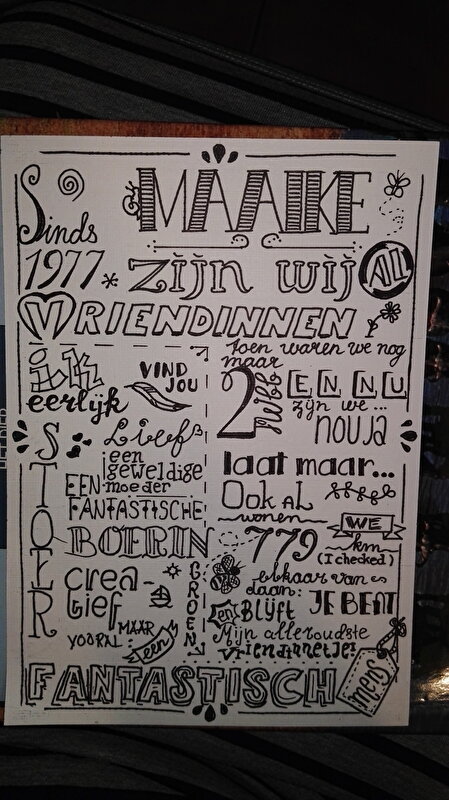 MAAIKE
Sinds
1977 * zijn wij AL
VRIENDINNEN
ik VIND JOU
eerlijk
STOER
Lief
een
geweldige
EEN moeder
FANTASTISCHE
BOERIN
crea-
tief
GROEN
VOORAL MAAR
een
Toen waren we nog
maar
2
EN NU
zijn we...
NOU JA
laat maar...
Ook AL
wonen WE
779 km
(I checked)
elkaar van
daan:
JE BENT
en BLIJFT
Mijn alleroudste
vriendinnetje!
FANTASTISCH mens